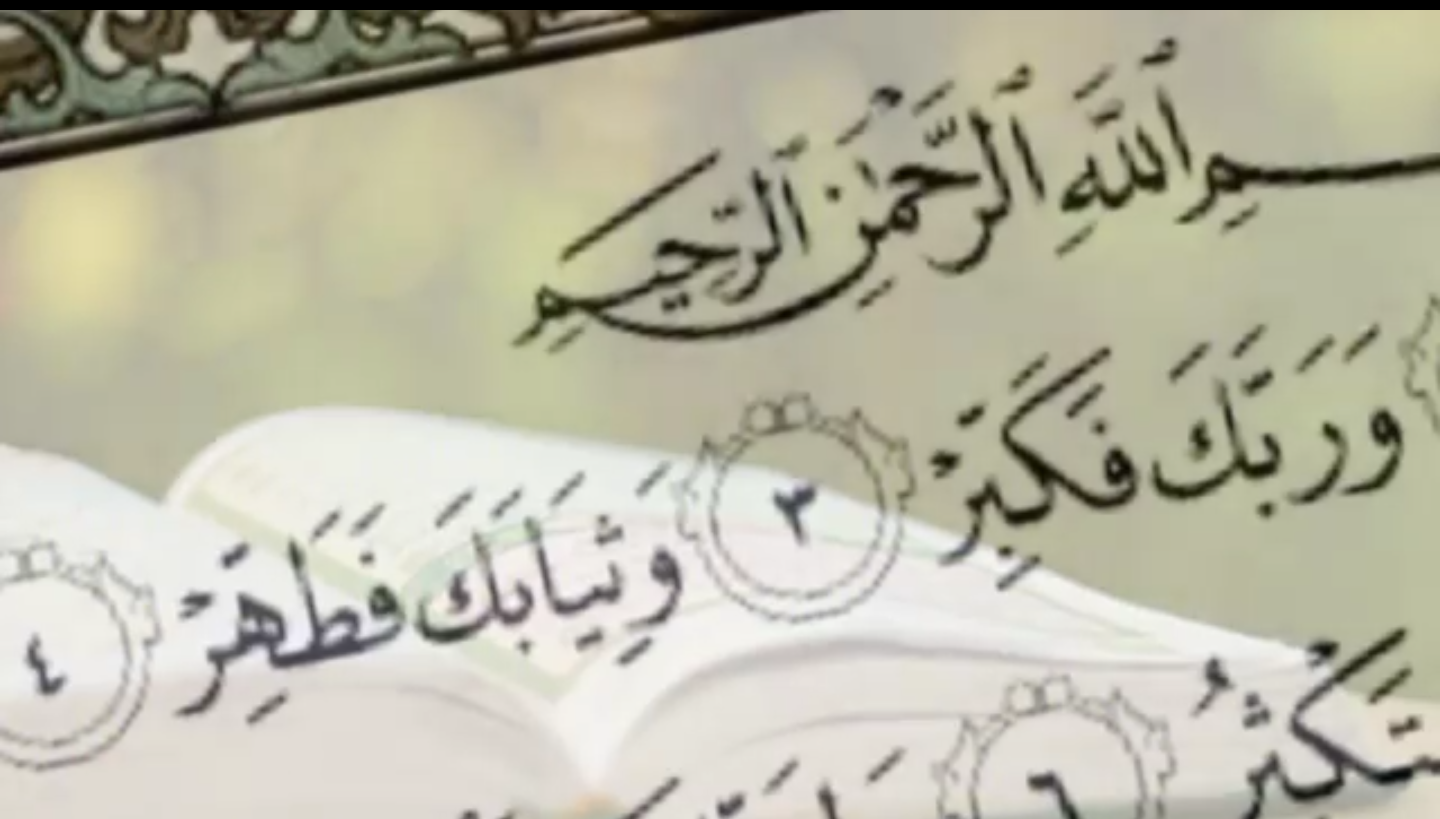 ـسمِ ٱللَّهِ ٱلرَّحْمَٰنِ ٱلرَّحِيمِ
وَرَبَّكَ فَكَبِّرْ ٣ وَثِيَابَكَ فَطَهِّرْ ٤
تَسْتَكْثِرُ ٦